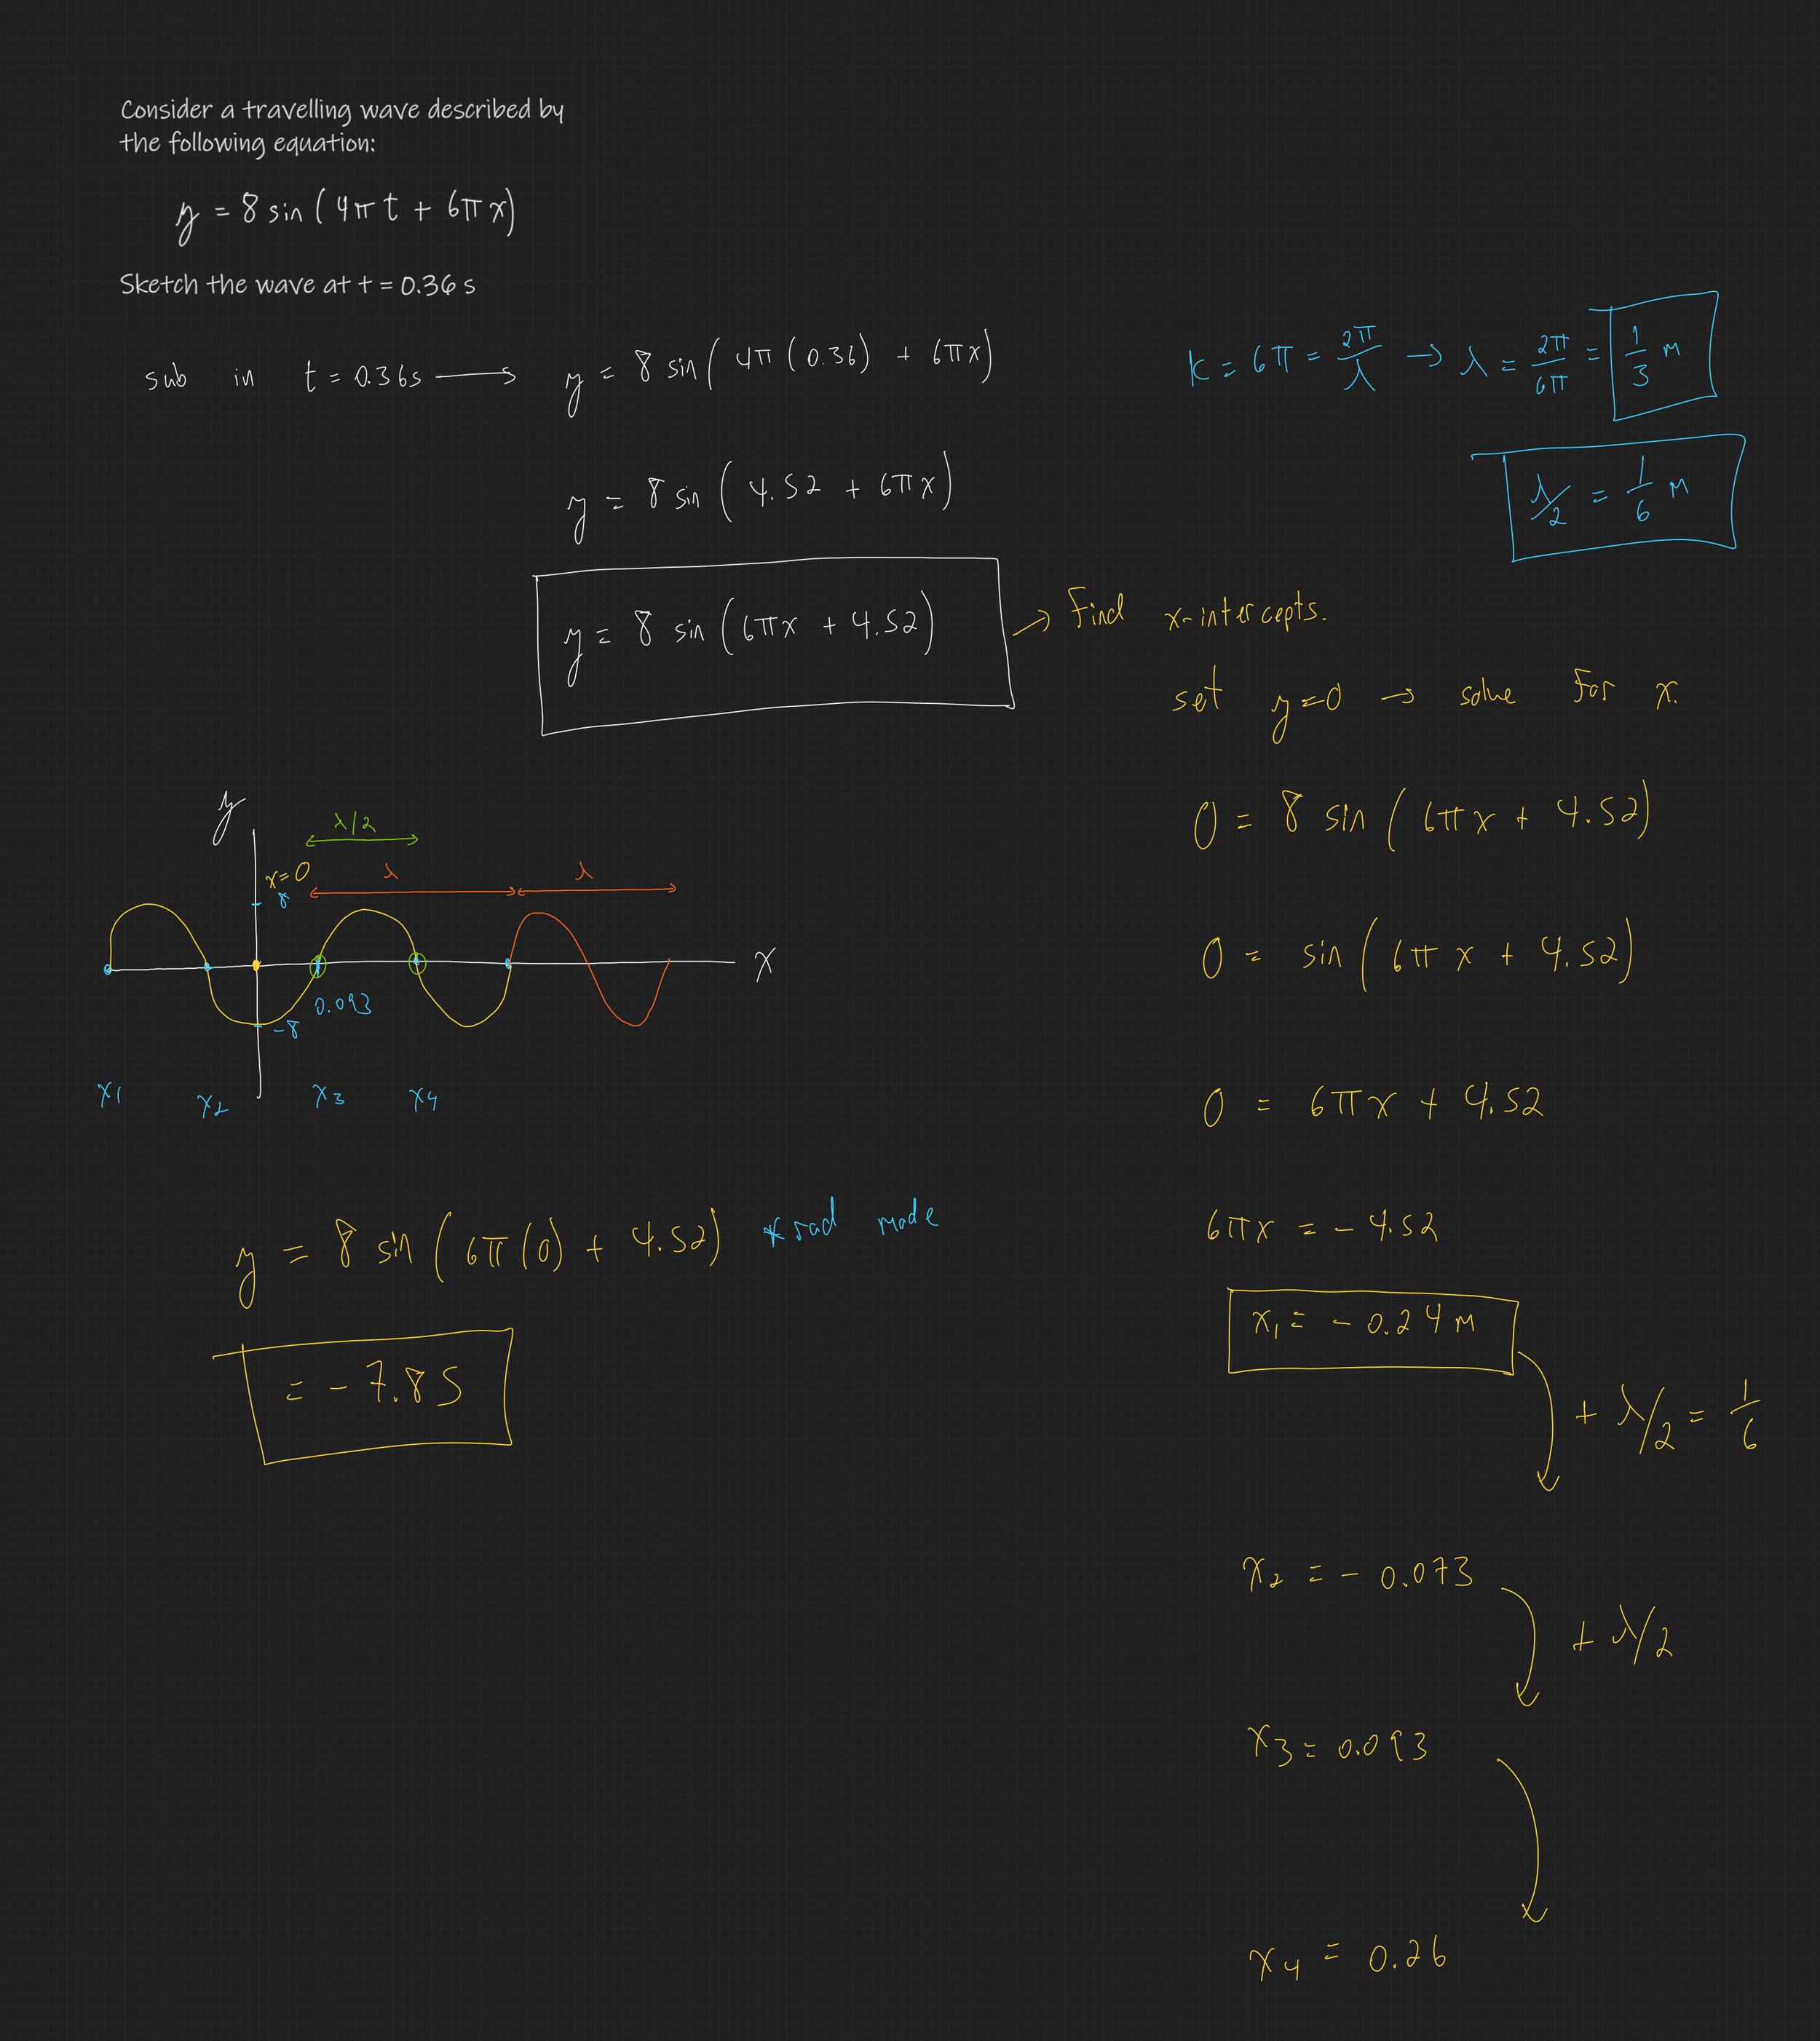 Consider a travelling wave described by
the following equation:
y = 8 sin ( 4π t + 6π x)
Sketch the wave at t = 0.36 s
sub in t = 0.36s → y = 8 sin( 4π (0.36) + 6πx)
y = 8 sin ( 4.52 + 6πx)
y = 8 sin (6πx + 4.52)
k = 6π = 2π/λ → λ = 2π/6π = 1/3 m
λ/2 = 1/6 m
→ Find x-intercepts.
set y=0 → solve for x.
0 = 8 sin ( 6πx + 4.52)
0 = sin ( 6π x + 4.52)
0 = 6πx + 4.52
6πx = - 4.52
x₁ = - 0.24 m
+ λ/2 = 1/6
x₂ = - 0.073
+ λ/2
x₃ = 0.093
x₄ = 0.26
y
λ/2
x=0
8
λ
λ
x
0.093
-8
x₁
x₂
x₃
x₄
y = 8 sin ( 6π (0) + 4.52) * rad mode
= - 7.85